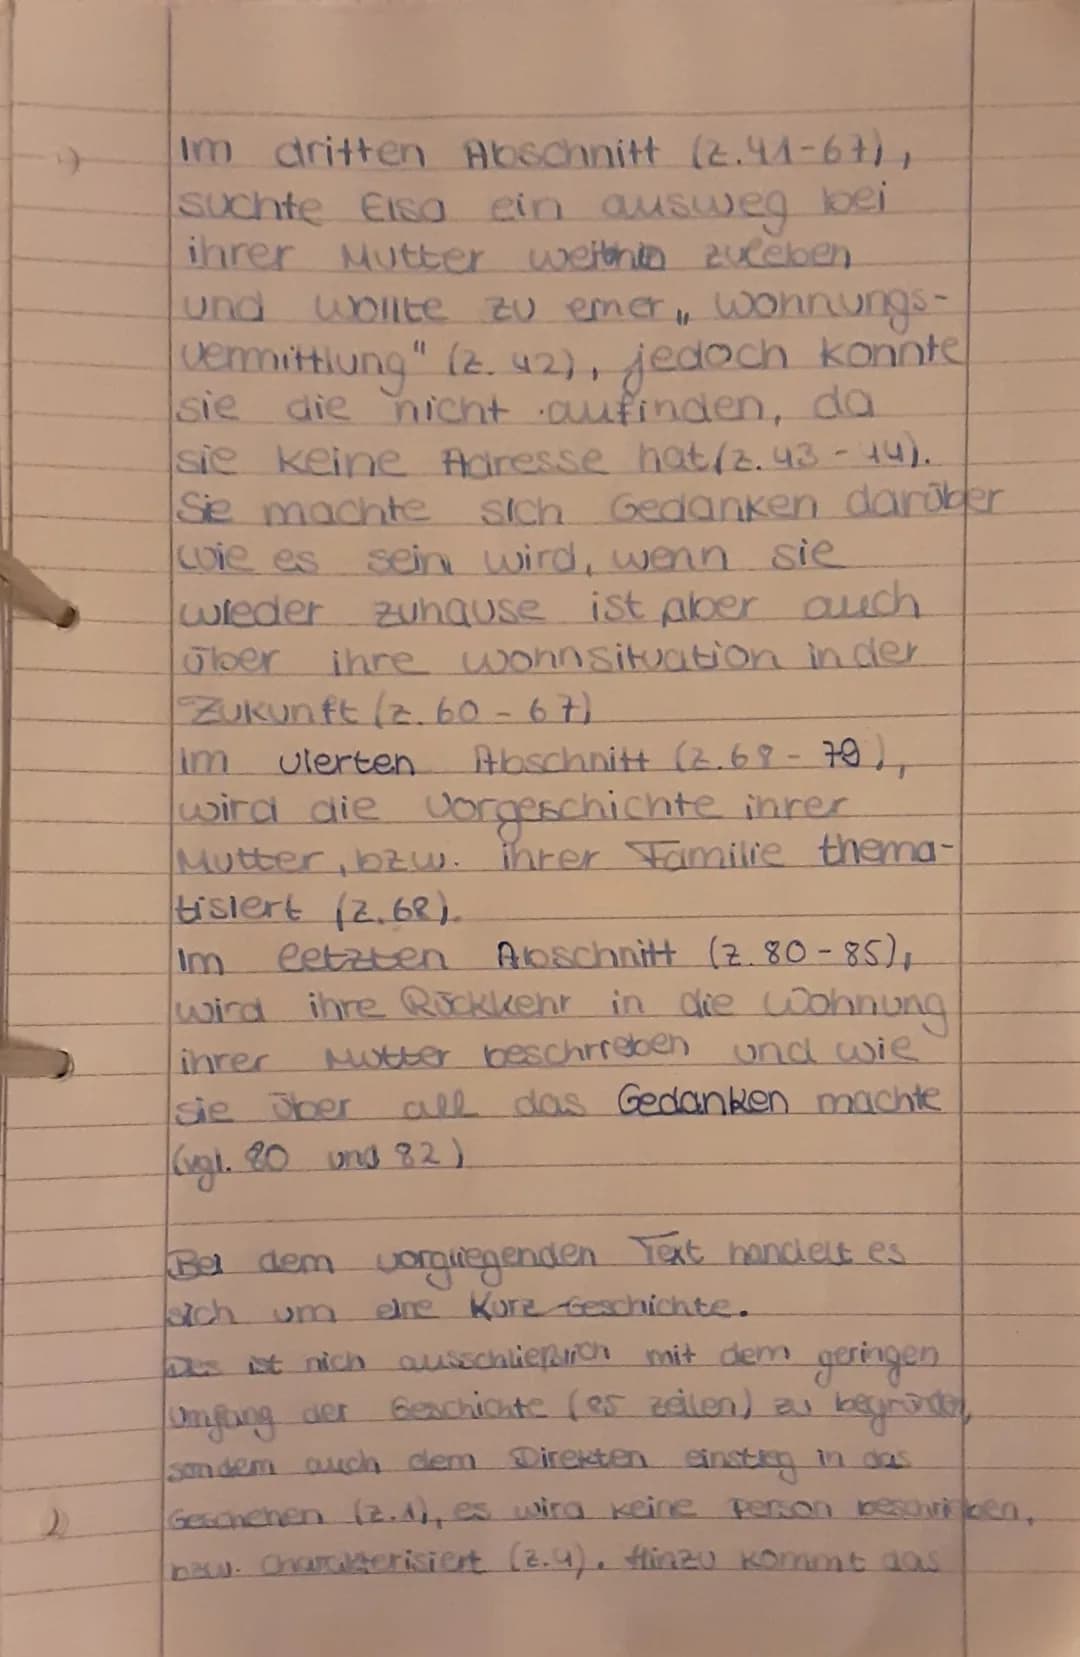 1)
Im dritten Abschnitt (Z.41-67),
suchte Elsa ein ausweg bei
ihrer Mutter weithin zuleben
und wollte zu einer „Wohnungs-
vermittlung" (Z. 42), jedoch konnte
sie die nicht aufinden, da
sie keine Adresse hat (Z. 43-44).
Sie machte sich Gedanken darüber
wie es sein wird, wenn sie
wieder zuhause ist aber auch
über ihre wohnsituation in der
Zukunft (Z. 60 - 67)
Im vierten Abschnitt (Z.68 - 79),
wird die Vorgeschichte ihrer
Mutter, bzw. ihrer Familie thema-
tisiert (Z. 68).
Im letzten Abschnitt (Z. 80-85),
wird ihre Rückkehr in die Wohnung
ihrer Mutter beschrieben und wie
sie über all das Gedanken machte
(vgl. 80 und 82)
Bei dem vorgliegenden Text handelt es
sich um eine Kurz Geschichte.
Des ist nich ausschließlich mit dem geringen
Umfang der Geschichte (85 Zeilen) zu begründen,
sondern auch dem Direkten einstieg in das
2)
Geschehen (Z.1), es wird keine Person beschrieben,
bzw. Charakterisiert (Z.4). Hinzu kommt das